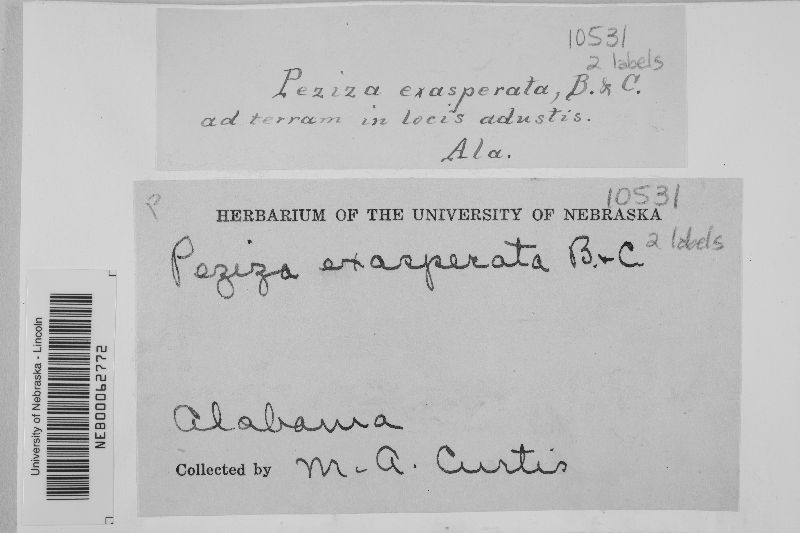 10531
2 labels
Peziza exasperata, B. & C.
ad terram in locis adustis.
Ala.
P
10531
HERBARIUM OF THE UNIVERSITY OF NEBRASKA
2 labels
Peziza exasperata B. & C.
Alabama
Collected by M. A. Curtis
University of Nebraska - Lincoln
NEB00062772